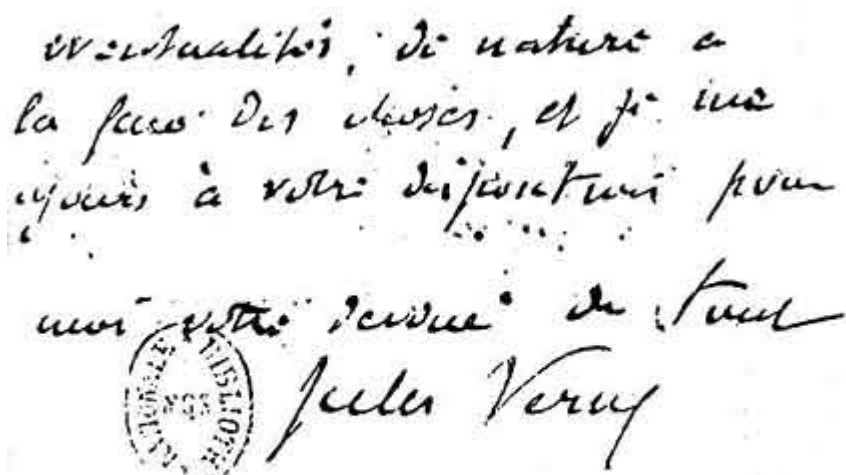 éventualités, de nature a
la face des choses, et je me
à votre disposition pour
moi votre dévoué de tout
Jules Verne
BIBLIOTH NATIONALE MSS